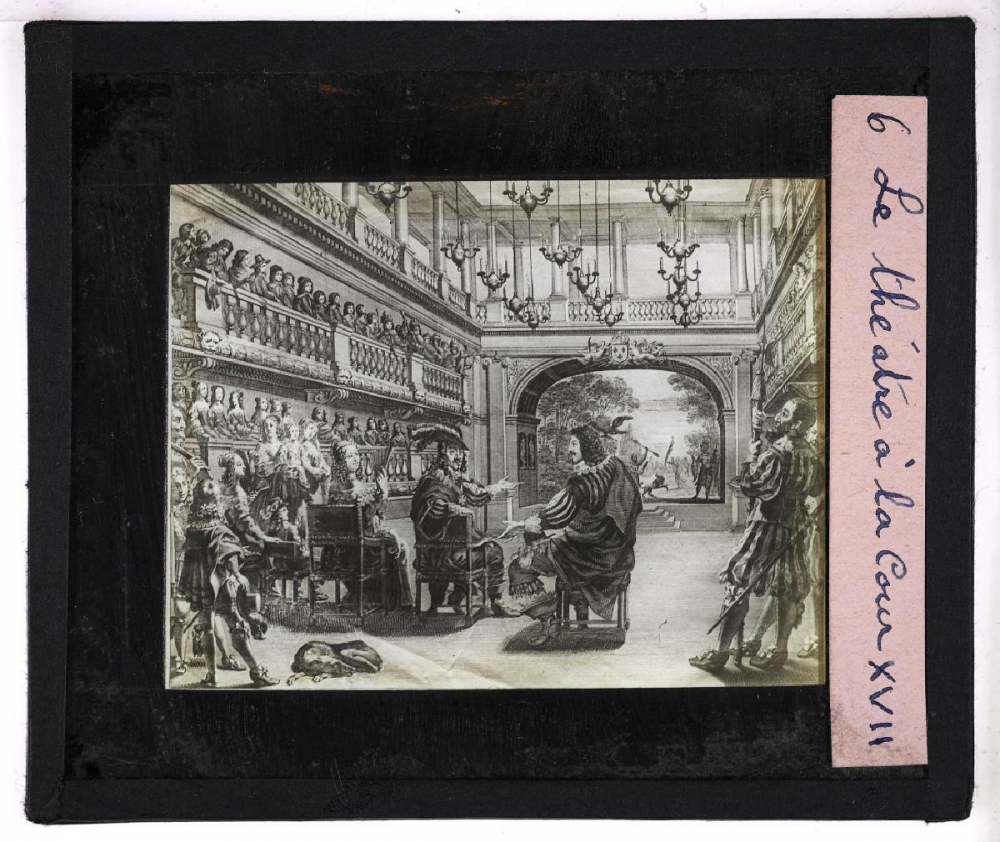 6 Le théatre à la Cour XVII